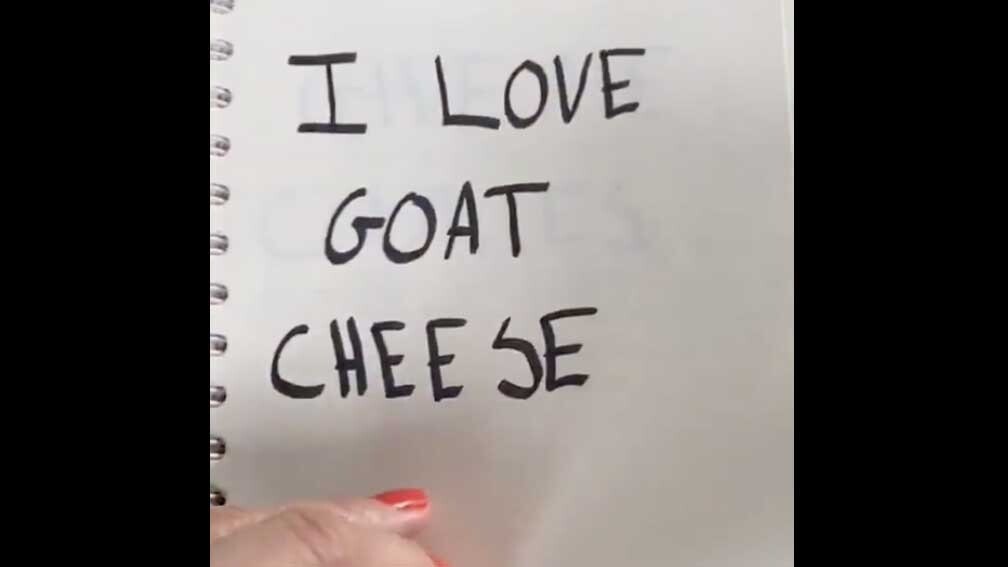 I LOVE
GOAT
CHEESE